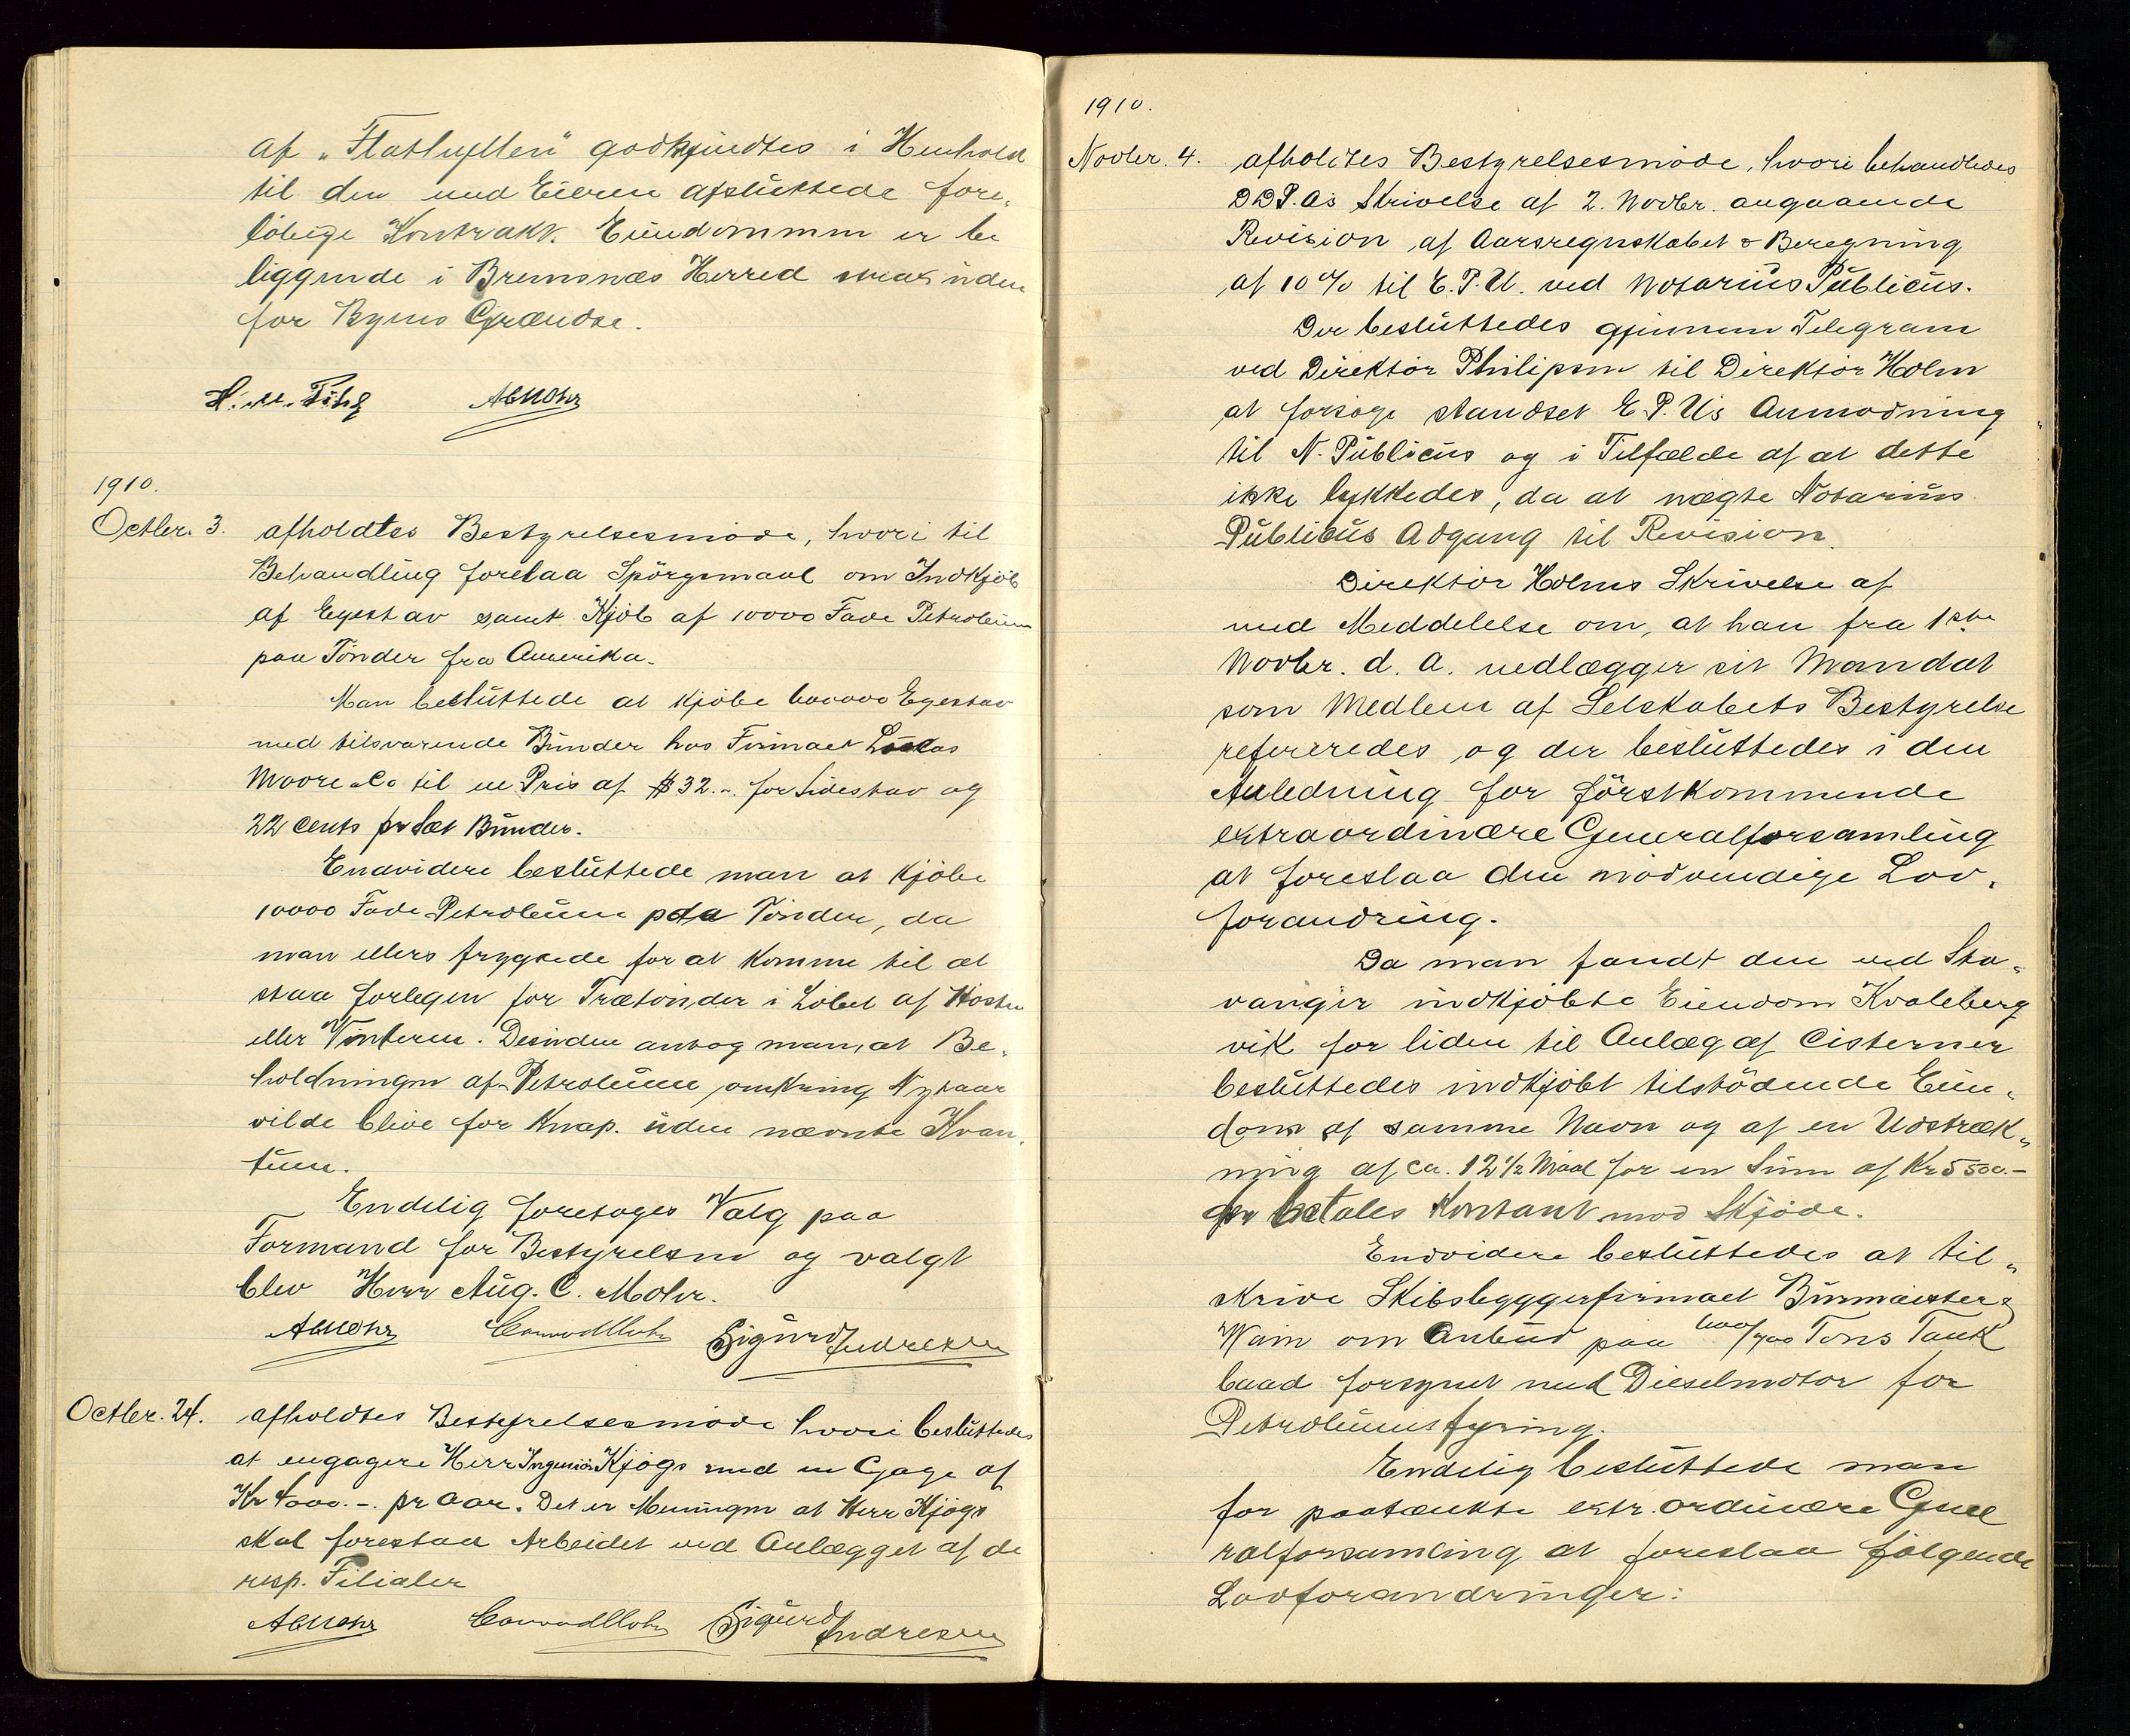 af „Flathyllen" godkjendtes i Henhold
til den med Eieren afsluttede fore-
löbige Kontrakt. Eiendommen er be
liggende i Bremsnæs Herred strax uden
for Byens Grændse.
1910.
Octber. 3. afholdtes Bestyrelsesmöde, hvori til
Behandling forelaa Spörgsmaal om Indkjöb
af Egestav samt Kjöb af 10000 Fade Petroleum
paa Tönder fra Amerika.
Man besluttede at kjöbe 600000 Egestav
med tilsvarende Bunder hos Firmaet Lucas
Moore & Co til en Pris af $ 32.-. for Sidestav og
22 cents pr Sæt Bunder.
Endvidere besluttede man at kjöbe
10000 Fade Petroleum paa Tönder, da
man ellers frygtede for at komme til at
staa forlegen for Trætönder i Löbet af Hösten
eller Vinteren. Desuden antog man, at Be-
holdningen af Petroleum omkring Nytaar
vilde blive for knap uden nævnte Kvan-
tum.
Endelig foretoges Valg paa
Formand for Bestyrelsen og valgt
blev Herr Aug. C. Mohr.
ACMohr Conrad Mohr Sigurd Indresen
Octber. 24. afholdtes Bestyrelsesmöde hvori besluttedes
at engagere Herr Ingeniör Kjögs med en Gage af
Kr 4000.-. pr Aar. Det er Meningen at Herr Kjögs
skal forestaa Arbeidet ved Anlægget af de
resp. Filialer
ACMohr Conrad Mohr Sigurd Indresen
1910.
Novber. 4. afholdtes Bestyrelsesmöde, hvori behandledes
DDPA's Skrivelse af 2. Novbr. angaaende
Revision af Aarsregnskabet & Beregning
af 10 % til E. P. U. ved Notarius Publicus.
Der besluttedes gjennem Telegram
ved Direktör Philipsen til Direktör Holm
at forsöge standset E. P. U's Anmodning
til N. Publicus og i Tilfælde af at dette
ikke lykkedes, da at nægte Notarius
Publicus Adgang til Revision.
Direktör Holms Skrivelse af
med Meddelelse om, at han fra 1ste
Novbr. d. A. nedlægger sit Mandat
som Medlem af Selskabets Bestyrelse
refereredes og der besluttedes i den
Anledning for förstkommende
extraordinære Generalforsamling
at foreslaa den nödvendige Lov-
forandring.
Da man fandt den ved Sta-
vanger indkjöbte Eiendom Kvaleberg
vik for liden til Anlæg af Cisterner
besluttedes indkjöbt tilstödende Eien-
dom af samme Navn og af en Udstræk-
ning af ca. 12 1/2 Maal for en Sum af Kr 5500.-
der betales Kontant mod Skjöde.
Endvidere besluttedes at til-
skrive Skibsbyggerfirmaet Burmaister &
Wain om Anbud paa Tons Tank
baad forsynet med Dieselmotor for
Petroleumsfyring.
Endelig besluttede man
for paatænkte extr. ordinære Gene
ralforsamling at foreslaa fölgende
Lovforandringer: